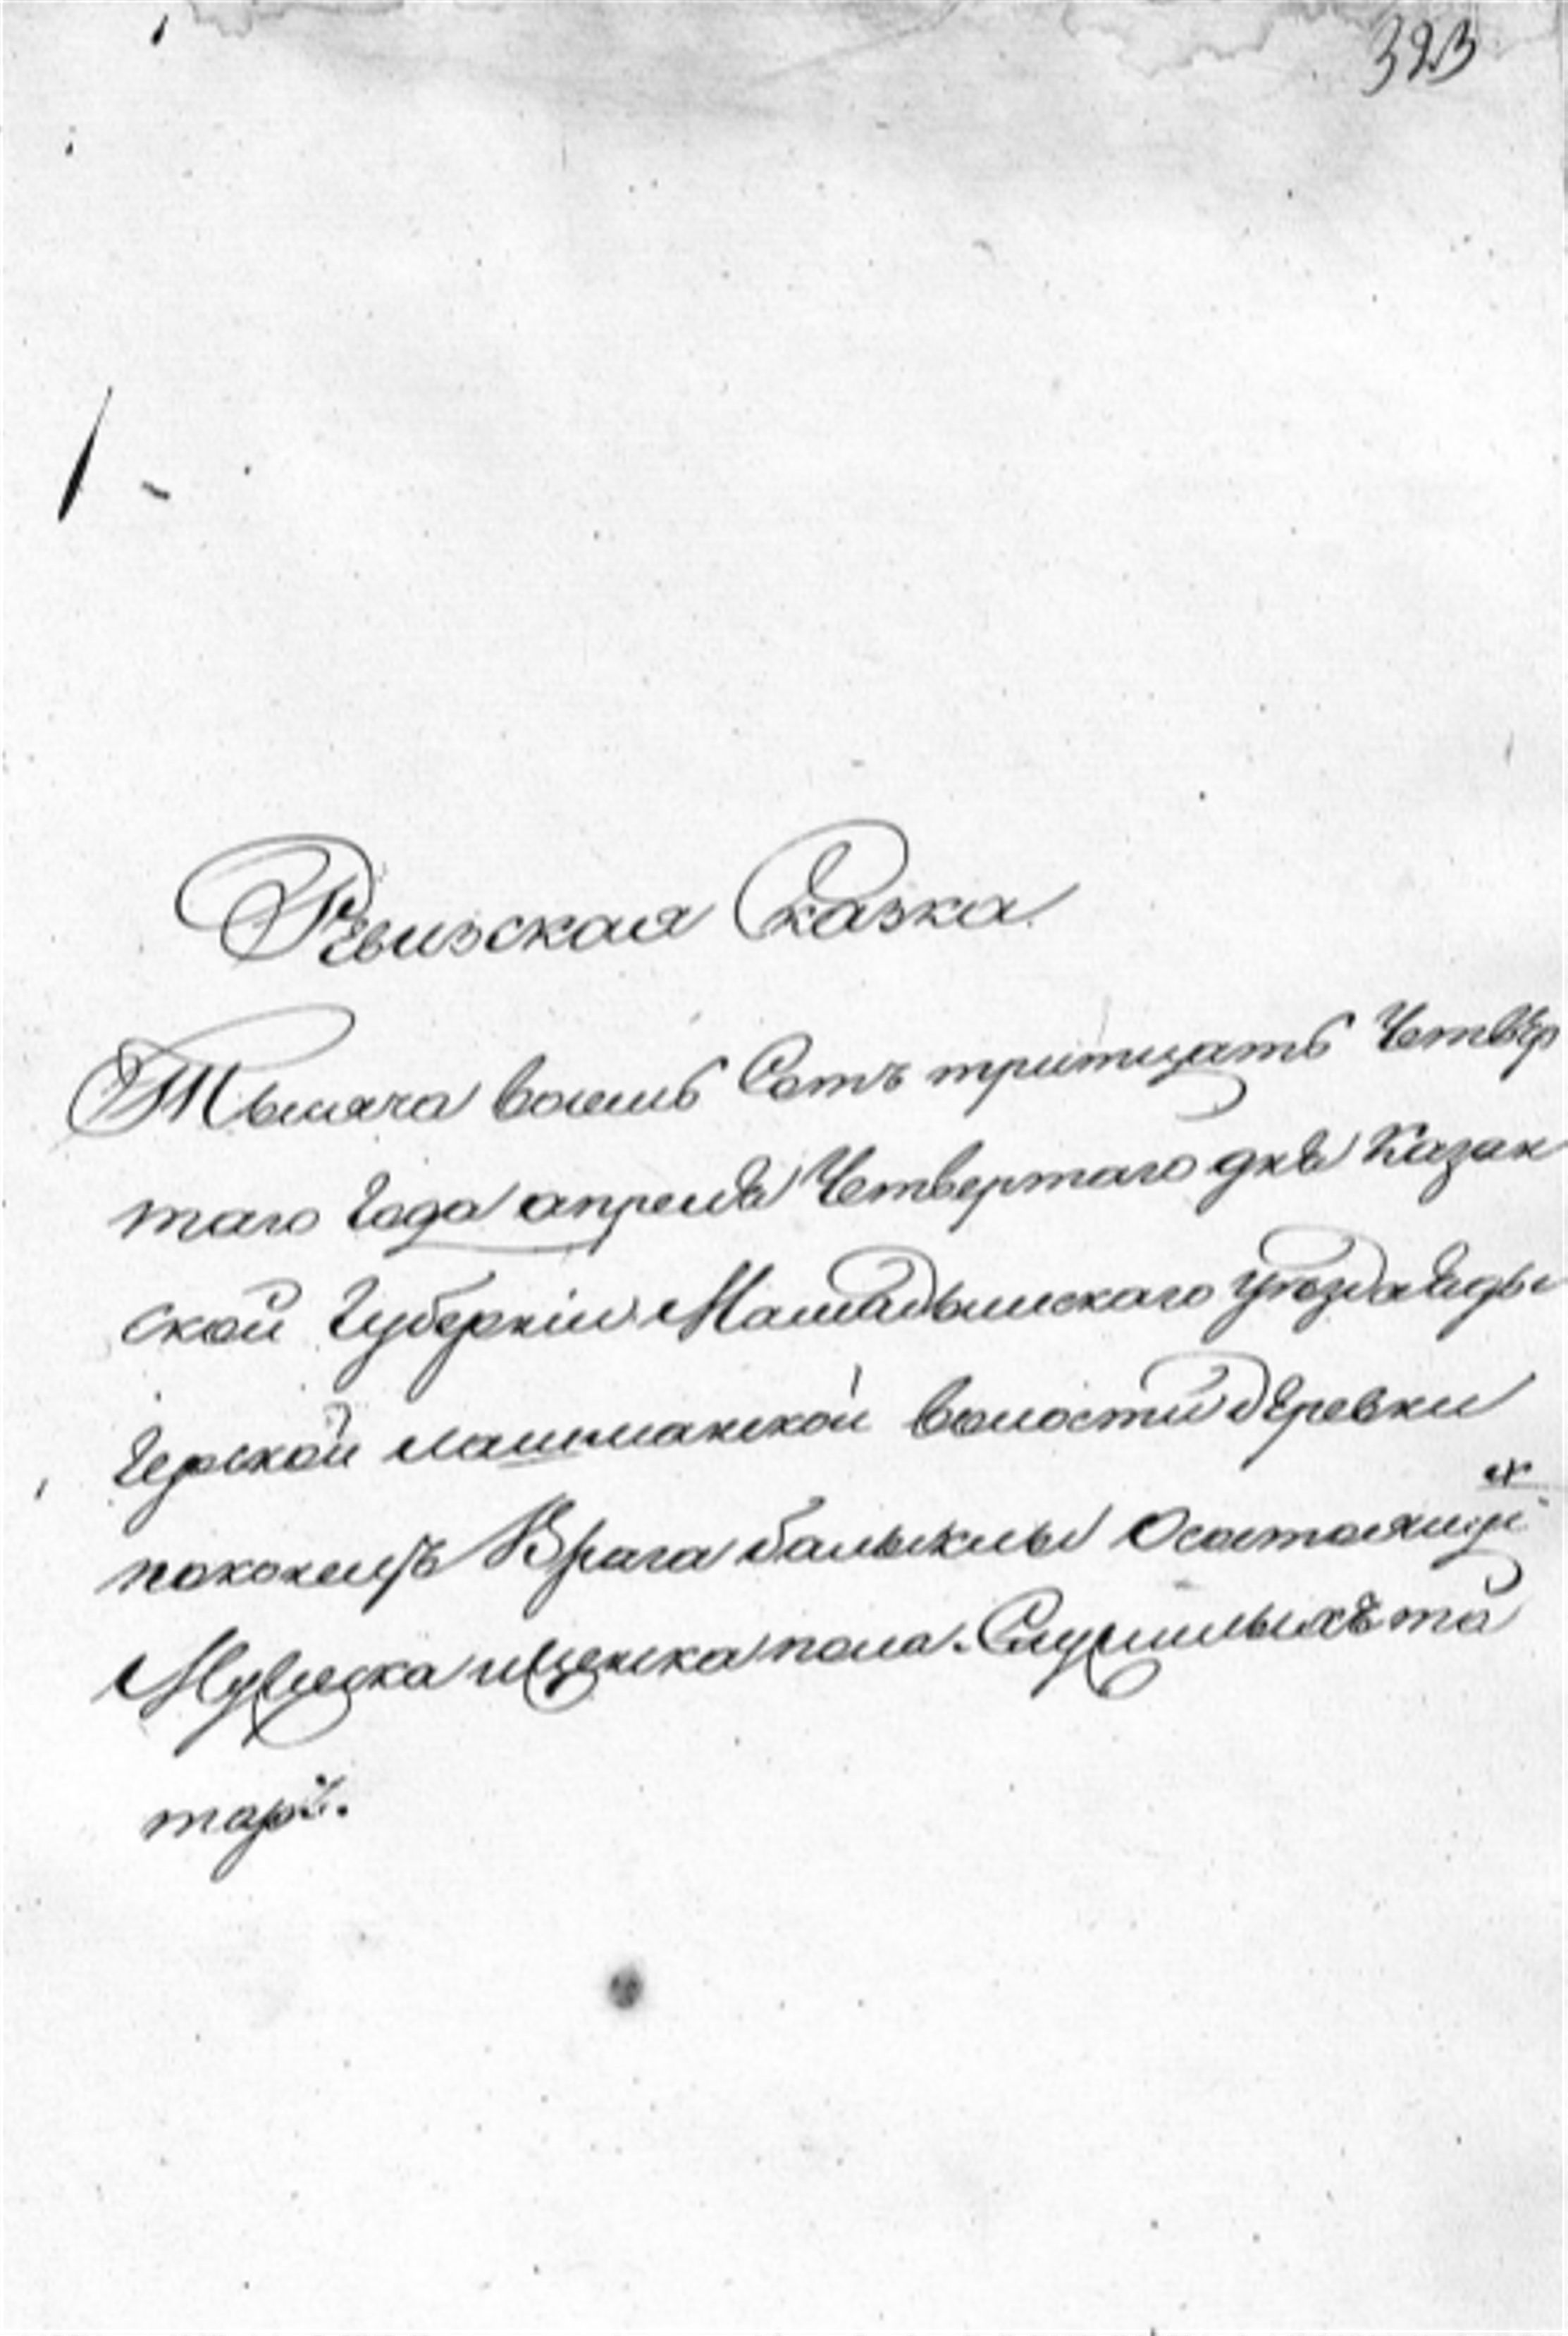 323
Ревизская Сказка
Тысяча восемь Сотъ тритцать Четвер
таго Года апреля Четвертаго дня Казан
ской Губернiи Мамадышскаго уѣзда
лашманской волости деревни
Врага балыклы Осостоящи
х
Мужеска иженска пола. Служилыхъ та
таръ.